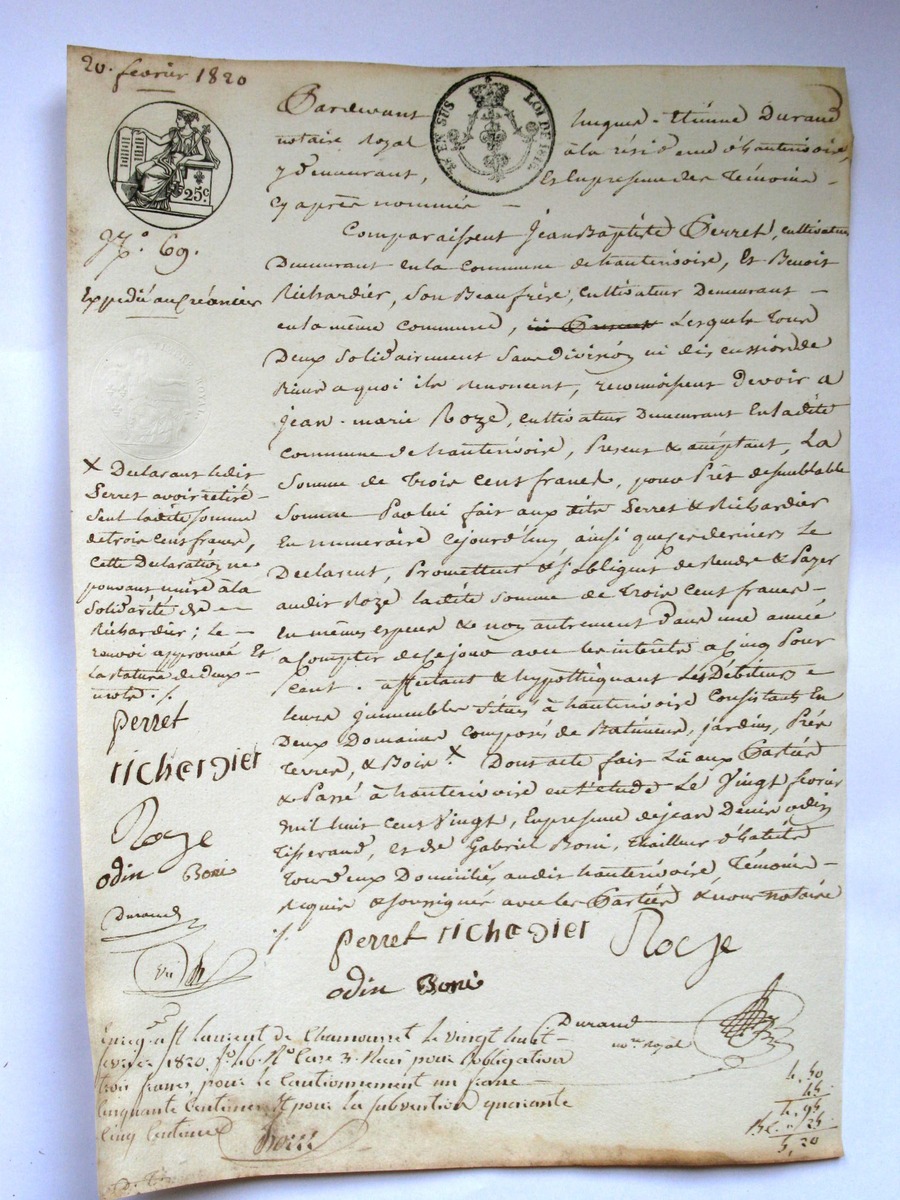 20. fevrier 1820
25c.
EN SUS
LOI DE 1816
No. 69.
Expedié au Créancier
Pardevant Etiénne Durand
notaire Royal à la résidence d'hauterivoire,
y demeurant, Et En presence des Témoins
cy après nommés
Comparaissent Jean Baptiste Perret, cultivateur
Demeurant en la Commune de hauterivoire, Et Benoit
Richardier, Son Beaufrère, cultivateur Demeurant
en la même commune, Lesquels tous
Deux Solidairement Sans division ni discussion de
Biens a quoi ils renoncent, reconnoissent Devoir a
Jean-marie Roze, cultivateur Demeurant En ladite
Commune de hauterivoire, Present & acceptant, La
Somme de trois Cent francs, pour Prêt de semblable
Somme Par lui fait aux dits Perret & Richardier
En numéraire cejourd'huy ainsi que ces derniers Le
Declarent, Promettent & s'obligent de Rendre & Payer
audit Roze ladite Somme de trois Cent francs
En mêmes especes & non autrement Dans une année
a Compter de ce jour avec les intérêts a Cinq Pour
Cent. affectant & hypothéquant Les Débiteurs
leurs immeubles Situés à hauterivoire Consistants En
Deux Domaines Composés de Batimens, jardins, Prés
terres, & Bois. X Dont acte fait Lû aux Parties
& Passé à hauterivoire en l'étude Le Vingt fevrier
mil huit cent Vingt, En presence de jean Denis odin
Tisserand, et de Gabriel Boni, thailleur d'habits
tous deux Domiciliés audit hauterivoire, Témoins
Requis & soussignés avec les Parties & nous notaire
./.
X Declarant ledit
Perret avoir retiré
Seul ladite somme
de trois cent francs,
Cette Declaration ne
pouvant nuire à la
Solidarité de
Richardier; le
renvoi approuvé Et
la rature de Deux
mots ./.
perret
richardier
Roze
odin Boni
Durand
perret richardier Roze
odin Boni
Durand
nore Royal
Enreg. à St laurent de Chamousset le vingt huit
fevrier 1820. fo. 46 Ro Case 3. Reçu pour l'obligation
trois francs pour le Cautionnement un franc
Cinquante Centimes Et pour la subvention quarante
Cinq Centimes
4, 50
45
4, 95
25
5, 20